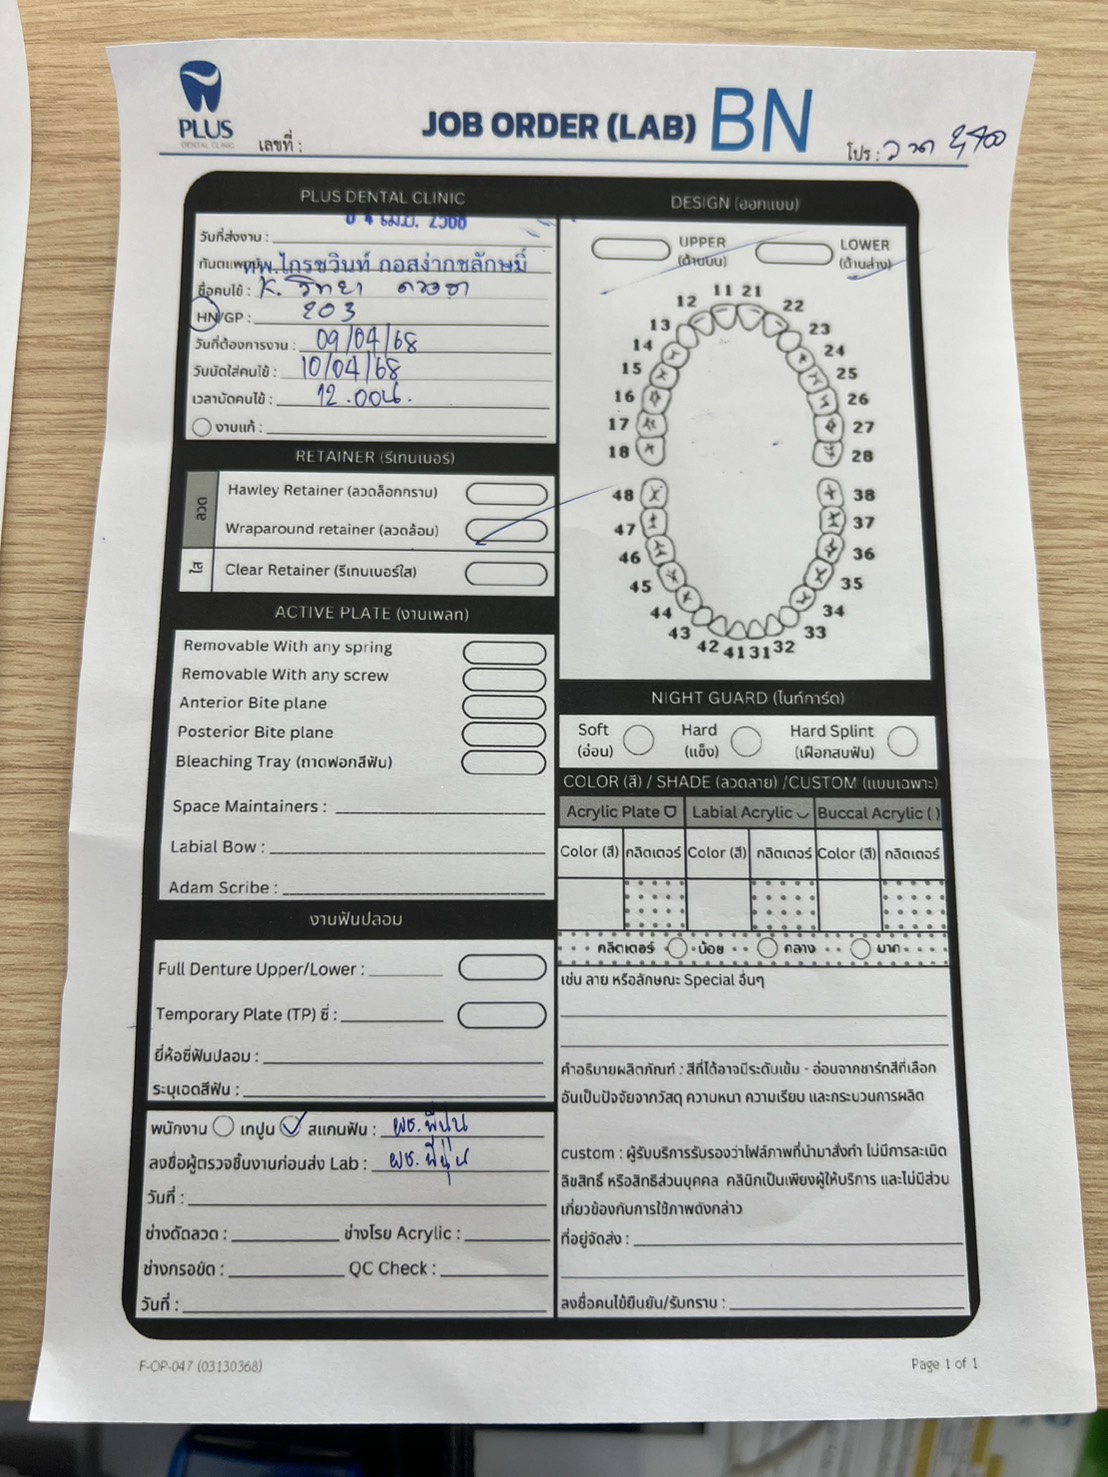 PLUS
DENTAL CLINIC
เลขที่ :
JOB ORDER (LAB) BN
โปร : ลวด
PLUS DENTAL CLINIC
วันที่ส่งงาน : 0 4 เม.ย. 2568
ทันตแพทย์ ทพ.ไกรชวินท์ กอสง่าลักษมี
ชื่อคนไข้ : K. วิทยา ดวงตา
HN/GP : 203
วันที่ต้องการงาน : 09/04/68
วันนัดใส่คนไข้ : 10/04/68
เวลานัดคนไข้ : 12.00น.
งานแก้ :
RETAINER (รีเทนเนอร์)
ลวด
Hawley Retainer (ลวดล็อกกราม)
Wraparound retainer (ลวดล้อม)
ใส
Clear Retainer (รีเทนเนอร์ใส)
ACTIVE PLATE (งานเพลท)
Removable With any spring
Removable With any screw
Anterior Bite plane
Posterior Bite plane
Bleaching Tray (ถาดฟอกสีฟัน)
Space Maintainers :
Labial Bow :
Adam Scribe :
งานฟันปลอม
Full Denture Upper/Lower :
Temporary Plate (TP) ซี่ :
ยี่ห้อซี่ฟันปลอม :
ระบุเฉดสีฟัน :
พนักงาน เทปูน สแกนฟัน : ผช.พี่นุ่น
ลงชื่อผู้ตรวจชิ้นงานก่อนส่ง Lab : ผช.พี่นุ่น
วันที่ :
ช่างดัดลวด : ช่างโรย Acrylic :
ช่างกรอขัด : QC Check :
วันที่ :
DESIGN (ออกแบบ)
UPPER (ด้านบน)
LOWER (ด้านล่าง)
11 21
12 22
13 23
14 24
15 25
16 26
17 27
18 28
48 38
47 37
46 36
45 35
44 34
43 33
42 41 31 32
NIGHT GUARD (ไนท์การ์ด)
Soft (อ่อน)
Hard (แข็ง)
Hard Splint (เฝือกสบฟัน)
COLOR (สี) / SHADE (ลวดลาย) /CUSTOM (แบบเฉพาะ)
Acrylic Plate Labial Acrylic Buccal Acrylic ( )
Color (สี) กลิตเตอร์ Color (สี) กลิตเตอร์ Color (สี) กลิตเตอร์
กลิตเตอร์ น้อย กลาง มาก
เช่น ลาย หรือลักษณะ Special อื่นๆ
คำอธิบายผลิตภัณฑ์ : สีที่ได้อาจมีระดับเข้ม - อ่อนจากชาร์ทสีที่เลือก
อันเป็นปัจจัยจากวัสดุ ความหนา ความเรียบ และกระบวนการผลิต
custom : ผู้รับบริการรับรองว่าไฟล์ภาพที่นำมาสั่งทำ ไม่มีการละเมิด
ลิขสิทธิ์ หรือสิทธิส่วนบุคคล คลินิกเป็นเพียงผู้ให้บริการ และไม่มีส่วน
เกี่ยวข้องกับการใช้ภาพดังกล่าว
ที่อยู่จัดส่ง :
ลงชื่อคนไข้ยืนยัน/รับทราบ :
F-OP-047 (03130368)
Page 1 of 1